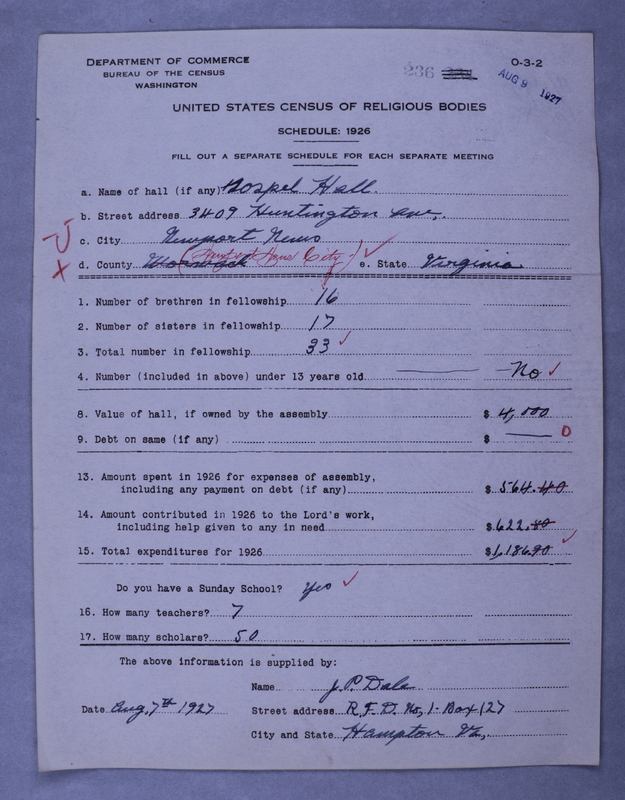 DEPARTMENT OF COMMERCE
BUREAU OF THE CENSUS
WASHINGTON
236
O-3-2
AUG 9 1927
UNITED STATES CENSUS OF RELIGIOUS BODIES
SCHEDULE: 1926
FILL OUT A SEPARATE SCHEDULE FOR EACH SEPARATE MEETING
a. Name of hall (if any) Gospel Hall.
b. Street address 3409 Huntington ave.
c. City Newport News
d. County Warwick ( City) e. State Virginia
1. Number of brethren in fellowship 16
2. Number of sisters in fellowship 17
3. Total number in fellowship 33
4. Number (included in above) under 13 years old No
8. Value of hall, if owned by the assembly $ 4,000
9. Debt on same (if any) $ 0
13. Amount spent in 1926 for expenses of assembly,
including any payment on debt (if any) $ 564.40
14. Amount contributed in 1926 to the Lord's work,
including help given to any in need $ 622.50
15. Total expenditures for 1926 $ 1,186.90
Do you have a Sunday School? Yes
16. How many teachers? 7
17. How many scholars? 50
The above information is supplied by:
Name J. P. Dale
Date Aug. 7th 1927 Street address R.F.D. No, 1- Box 127
City and State Hampton Va.,